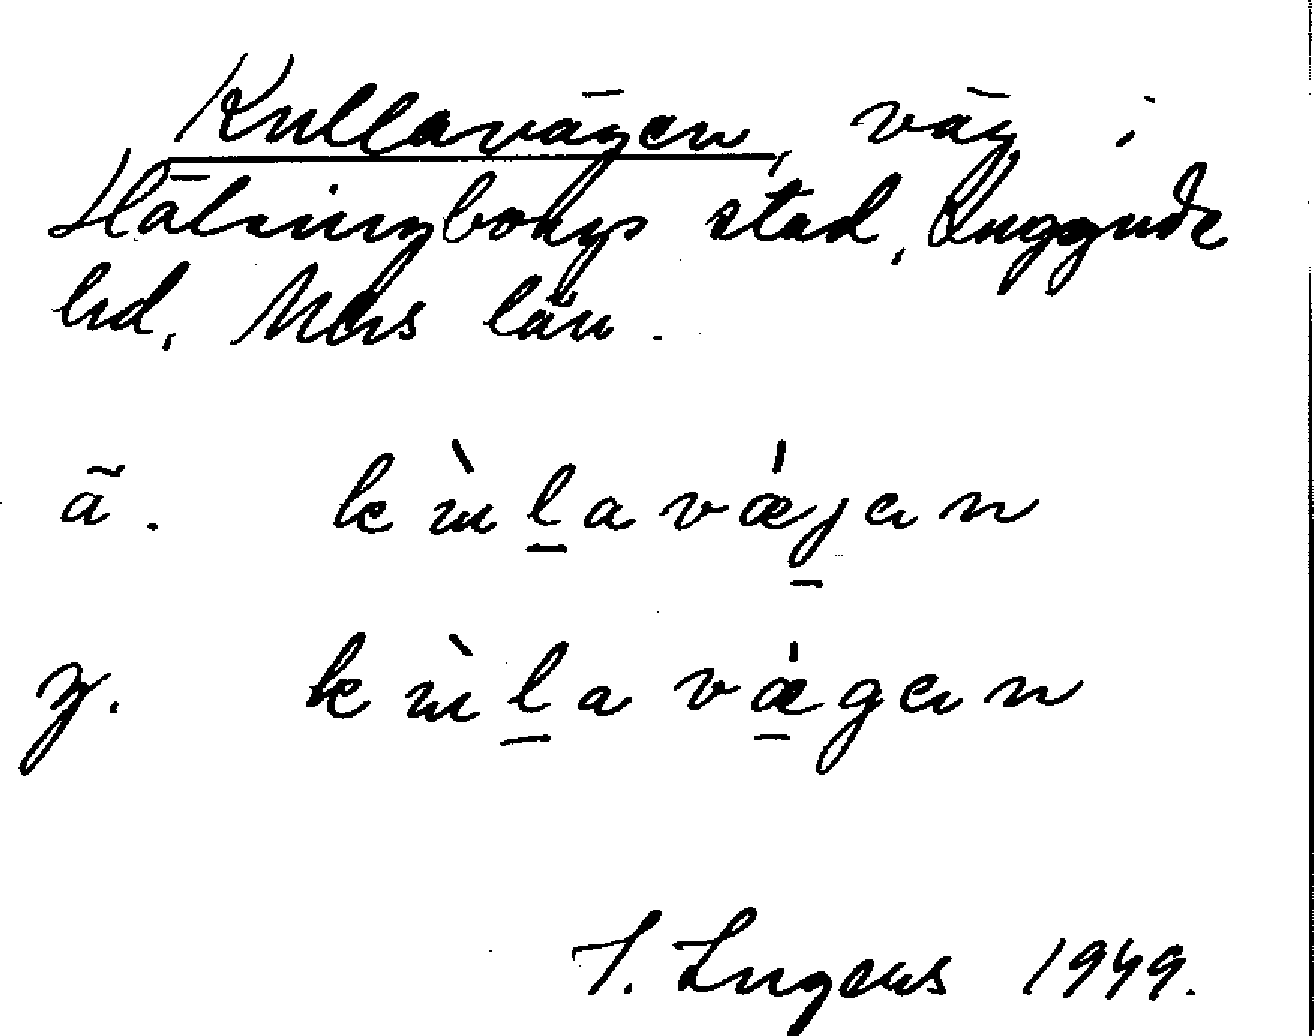 Kullavägen, väg i
Hälsingborgs stad, Luggude
hd, Mhs län.
ä. kùl̲avǽj̲ən
y. kùl̲avǽ̲gən
I. Ingers 1949.